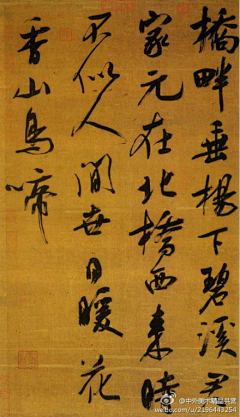 橋畔垂楊下碧溪君
家元在北橋西來時
不似人間世日暖花
香山鳥啼
@中外美术精品共赏
weibo.com/u/2196443254